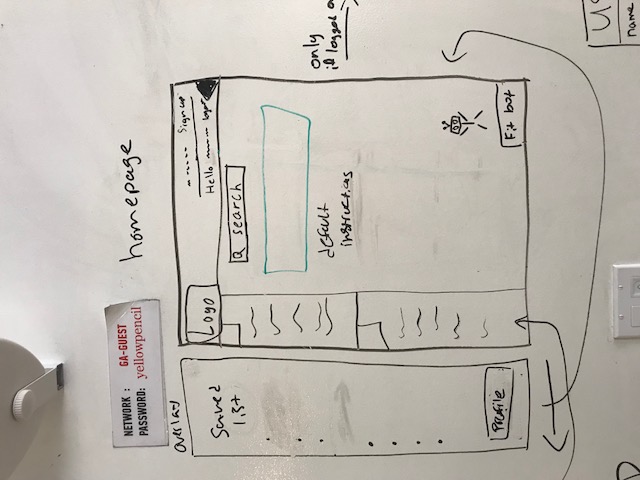 NETWORK : GA-GUEST
PASSWORD: yellowpencil
homepage
overlay
Saved
list
Profile
Logo
Sign up
Hello
search
default
instructions
Fit bot
only
if logged
US
name